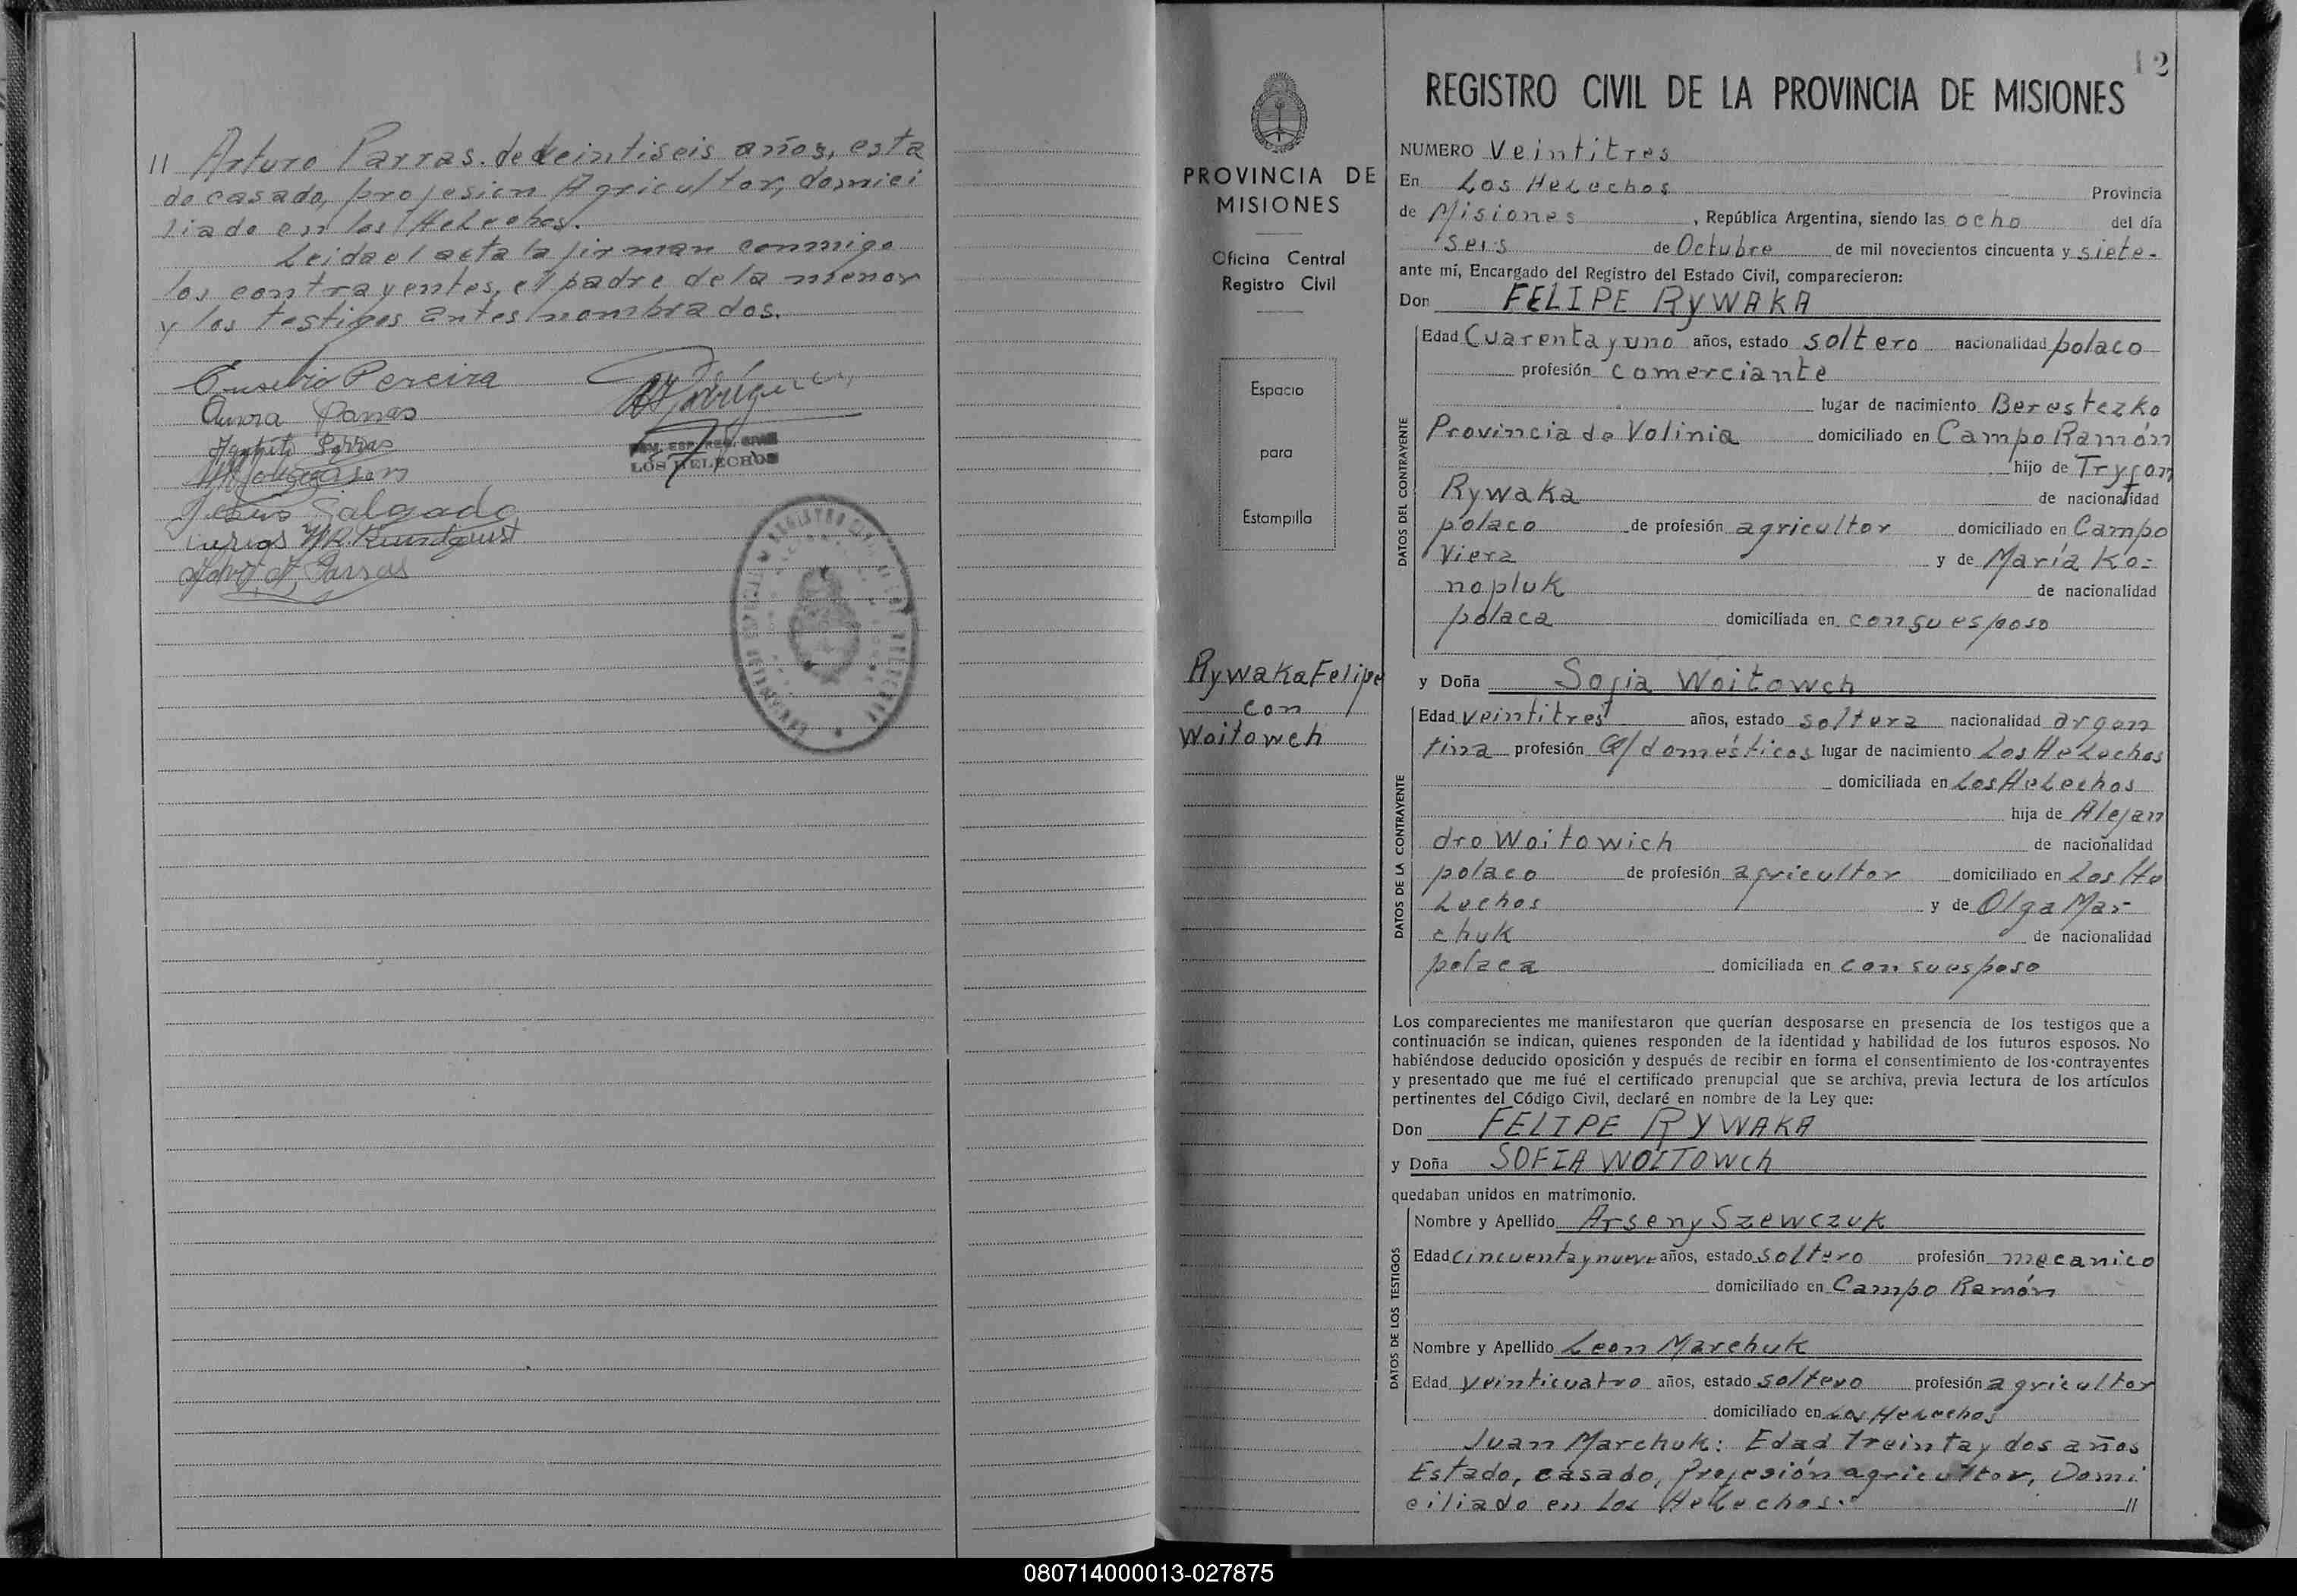 // Arturo Parras. de veintiseis años, esta
do casado, profesion Agricultor, domici
liado en los Helechos.
Leida el acta la firman conmigo
los contrayentes, el padre de la menor
y los testigos antes nombrados.
Eusebio Pereira
Aurora Parras
Parras
Jesus Salgado
Parras
LOS HELECHOS
12
REGISTRO CIVIL DE LA PROVINCIA DE MISIONES
PROVINCIA DE
MISIONES
Oficina Central
Registro Civil
Espacio
para
Estampilla
Rywaka Felipe
con
Woitowch
NUMERO Veintitres
En Los Helechos Provincia
de Misiones, República Argentina, siendo las ocho del día
seis de Octubre de mil novecientos cincuenta y siete-
ante mí, Encargado del Registro del Estado Civil, comparecieron:
Don FELIPE RYWAKA
DATOS DEL CONTRAYENTE
Edad Cuarenta y uno años, estado soltero nacionalidad polaco
profesión comerciante
lugar de nacimiento Berestezko
Provincia de Volinia domiciliado en Campo Ramón
hijo de Tryfon
Rywaka de nacionalidad
polaco de profesión agricultor domiciliado en Campo
Viera y de María Ko-
nopluk de nacionalidad
polaca domiciliada en con su esposo
y Doña Sofia Woitowch
DATOS DE LA CONTRAYENTE
Edad veintitres años, estado soltera nacionalidad argen
tina profesión Q/domésticos lugar de nacimiento Los Helechos
domiciliada en Los Helechos
hija de Alejan
dro Woitowich de nacionalidad
polaco de profesión agricultor domiciliado en Los He
Lechos y de Olga Mar-
chuk de nacionalidad
polaca domiciliada en con su esposo
Los comparecientes me manifestaron que querían desposarse en presencia de los testigos que a
continuación se indican, quienes responden de la identidad y habilidad de los futuros esposos. No
habiéndose deducido oposición y después de recibir en forma el consentimiento de los contrayentes
y presentado que me fué el certificado prenupcial que se archiva, previa lectura de los artículos
pertinentes del Código Civil, declaré en nombre de la Ley que:
Don FELIPE RYWAKA
y Doña SOFIA WOITOWCh
quedaban unidos en matrimonio.
DATOS DE LOS TESTIGOS
Nombre y Apellido Arseny Szewczuk
Edad cincuenta y nueve años, estado soltero profesión mecanico
domiciliado en Campo Ramón
Nombre y Apellido Leon Marchuk
Edad veinticuatro años, estado soltero profesión agricultor
domiciliado en Los Helechos
Juan Marchuk: Edad treinta y dos años
Estado, casado, Profesión agricultor, Domi
ciliado en Los Helechos. //
080714000013-027875